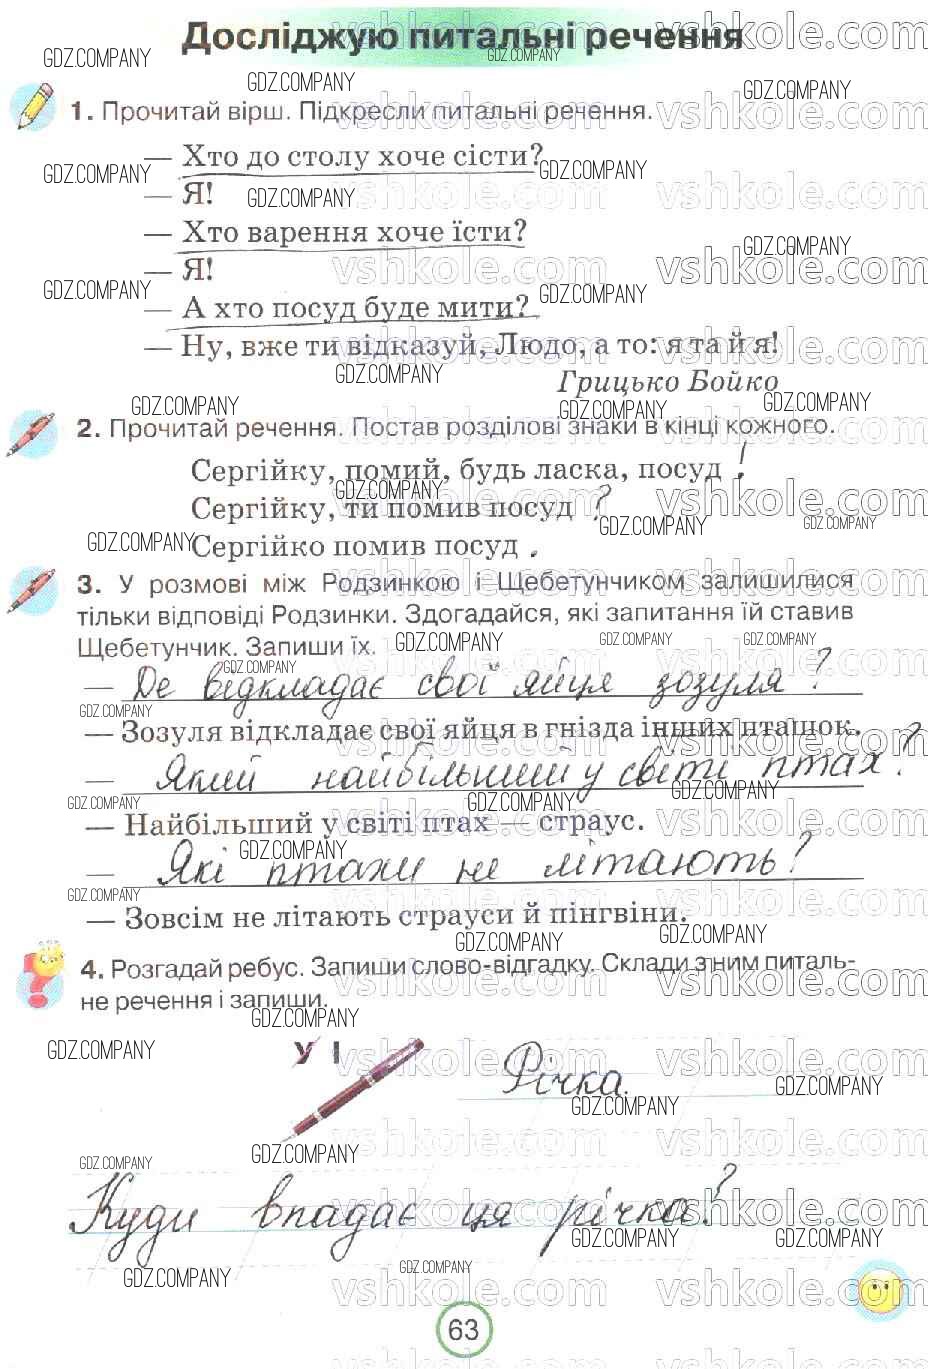 Досліджую питальні речення
1. Прочитай вірш. Підкресли питальні речення.
— Хто до столу хоче сісти?
— Я!
— Хто варення хоче їсти?
— Я!
— А хто посуд буде мити?
— Ну, вже ти відказуй, Людо, а то: я та й я!
Грицько Бойко
2. Прочитай речення. Постав розділові знаки в кінці кожного.
Сергійку, помий, будь ласка, посуд !
Сергійку, ти помив посуд ?
Сергійко помив посуд .
3. У розмові між Родзинкою і Щебетунчиком залишилися
тільки відповіді Родзинки. Здогадайся, які запитання їй ставив
Щебетунчик. Запиши їх.
— Де відкладає свої яйця зозуля?
— Зозуля відкладає свої яйця в гнізда інших пташок.
— Який найбільший у світі птах?
— Найбільший у світі птах — страус.
— Які птахи не літають?
— Зовсім не літають страуси й пінгвіни.
4. Розгадай ребус. Запиши слово-відгадку. Склади з ним питаль-
не речення і запиши.
У І
Річка.
Куди впадає ця річка?
63
GDZ.COMPANY
vshkole.com